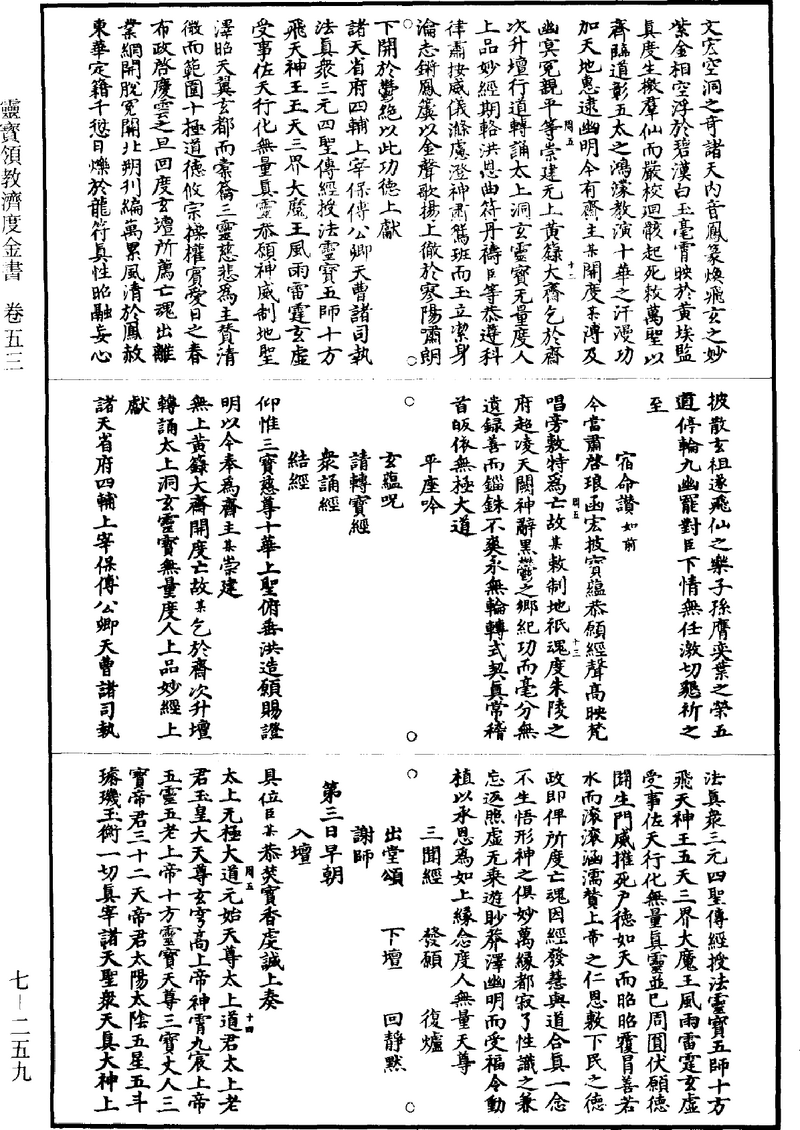 靈寶領教濟度金書 卷五三
七-二五九
文宏空洞之奇諸天内音鳳篆煥飛玄之妙
紫金相空浮於碧漢白玉毫霄映於黄埃監
真度生檄羣仙而嚴校迴骸起死救萬聖以
齊臨道彰五太之鴻濛教演十華之汗漫功
加天地惠逮幽明今有齋主某開度某溥及
幽冥冤親平等崇建元上黄籙大齋乞於齋
次升壇行道轉誦太上洞玄靈寶无量度人
上品妙經期輅洪恩曲符丹禱臣等恭遵科
律肅按威儀滌慮澄神肅鵷班而玉立潔身
淪志鏘鳳簴以金聲歌揚上徹於寥陽嘯朗
下開於鬱絶以此功德上獻
諸天省府四輔上宰保傅公卿天曹諸司執
法真衆三元四聖傳經授法靈寶五師十方
飛天神王五天三界大魔王風雨雷霆玄虛
受事佐天行化無量真靈恭願神威制地聖
澤昭天翼玄都而橐籥三靈慈悲爲主賛清
微而範圍十極道德攸宗操權賓愛日之春
布政啓慶雲之旦回度玄壇所薦亡魂出離
業網開脱冤關北朔刋編萬累風清於鳳赦
東華定籍千愆日爍於龍符真性昭融妄心
披散玄祖遂飛仙之樂子孫膺奕葉之榮五
道停輪九幽罷對臣下情無任激切懇祈之
至
宿命讚 如前
今當肅啓琅函宏披寶蘊恭願經聲高映梵
唱旁敷特爲亡故某敕制地祇魂度朱陵之
府超凌天關神辭黑鬱之鄉紀功而毫分無
遺録善而錙銖不爽永無輪轉式契真常稽
首皈依無極大道
平座吟
玄蘊呪
請轉寶經
衆誦經
結經
仰惟三寶慈尊十華上聖俯垂洪造願賜證
明以今奉爲齋主某崇建
無上黄籙大齋開度亡故某乞於齋次升壇
轉誦太上洞玄靈寶無量度人上品妙經上
獻
諸天省府四輔上宰保傅公卿天曹諸司執
法真衆三元四聖傳經授法靈寶五師十方
飛天神王五天三界大魔王風雨雷霆玄虛
受事佐天行化無量真靈並已周圓伏願德
闢生門威摧死户德如天而昭昭覆冐善若
水而滚滚涵濡贊上帝之仁恩敷下民之德
政即俾所度亡魂因經發慧與道合真一念
不生悟形神之俱妙萬緣都寂了性識之兼
忘返照虛无乗遊眇莽澤幽明而受福令動
植以承恩爲如上緣念度人無量天尊
三聞經 發願 復爐
出堂頌 下壇 回靜默
謝師
第三日早朝
入壇
具位臣某恭焚寶香虔誠上奏
太上无極大道元始天尊太上道君太上老
君玉皇大天尊玄穹高上帝神霄九宸上帝
五靈五老上帝十方靈寶天尊三寶丈人三
寶帝君三十二天帝君太陽太陰五星五斗
璿璣玉衡一切真宰諸天聖衆天真大神上